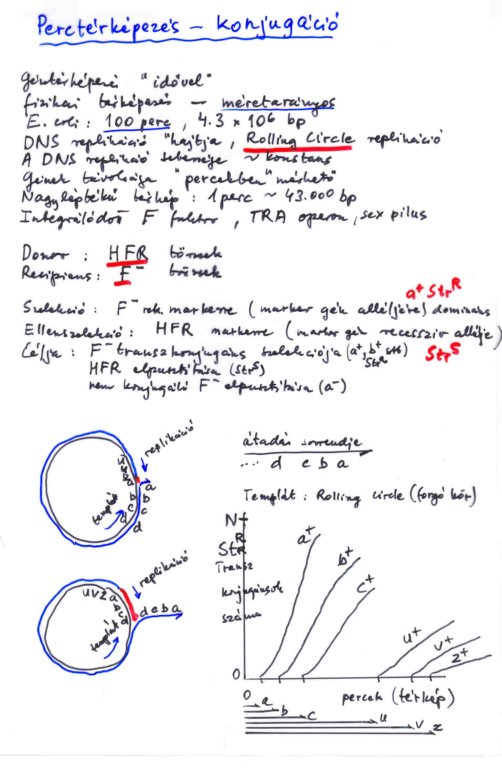 Perctérképezés – konjugáció
Géntérképezés "idővel"
fizikai térképezés – méretarányos
E. coli : 100 perc , 4.3 x 10⁶ bp
DNS replikáció "hajtja", Rolling Circle replikáció
A DNS replikáció sebessége ~ konstans
Gének távolsága "percekben" mérhető
Nagyléptékű térkép : 1 perc ~ 43.000 bp
Integrálódott F faktor , TRA operon , sex pilus
Donor : HFR törzsek
Recipiens : F⁻ törzsek
a⁺ Strᴿ
Szelekció : F⁻ rek. markerre (marker gén alléljére) domináns
Ellenszelekció : HFR markerre (marker gén recesszív allélje)
Célja : F⁻ transzkonjugáns szelekciója (a⁺, b⁺ stb
Strᴿ
Strˢ
HFR elpusztítása (Strˢ)
nem konjugáló F⁻ elpusztítása (a⁻)
replikáció
u v z a b c d
templát
a b c d
átadás sorrendje
.... d c b a
Templát : Rolling circle (forgó kör)
replikáció
u v z a b c d
templát
d c b a
N
Strᴿ
Transz
konjugánsok
száma
0
a⁺
b⁺
c⁺
u⁺
v⁺
z⁺
0
percek (térkép)
a
b
c
u
v
z